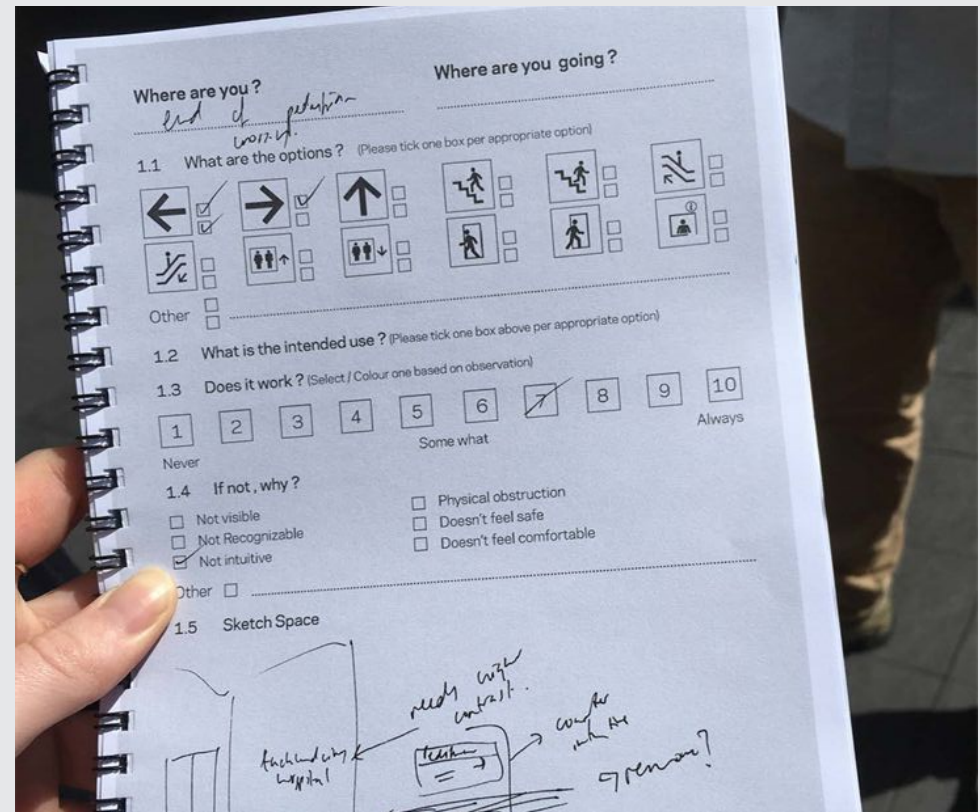 Where are you ?
Where are you going ?
end of
1.1 What are the options ? (Please tick one box per appropriate option)
Other
1.2 What is the intended use ? (Please tick one box above per appropriate option)
1.3 Does it work ? (Select / Colour one based on observation)
1 2 3 4 5 6 7 8 9 10
Never
Some what
Always
1.4 If not, why ?
Not visible
Not Recognizable
Not intuitive
Other
Physical obstruction
Doesn't feel safe
Doesn't feel comfortable
1.5 Sketch Space
needs high
contrast.
hospital
remove?